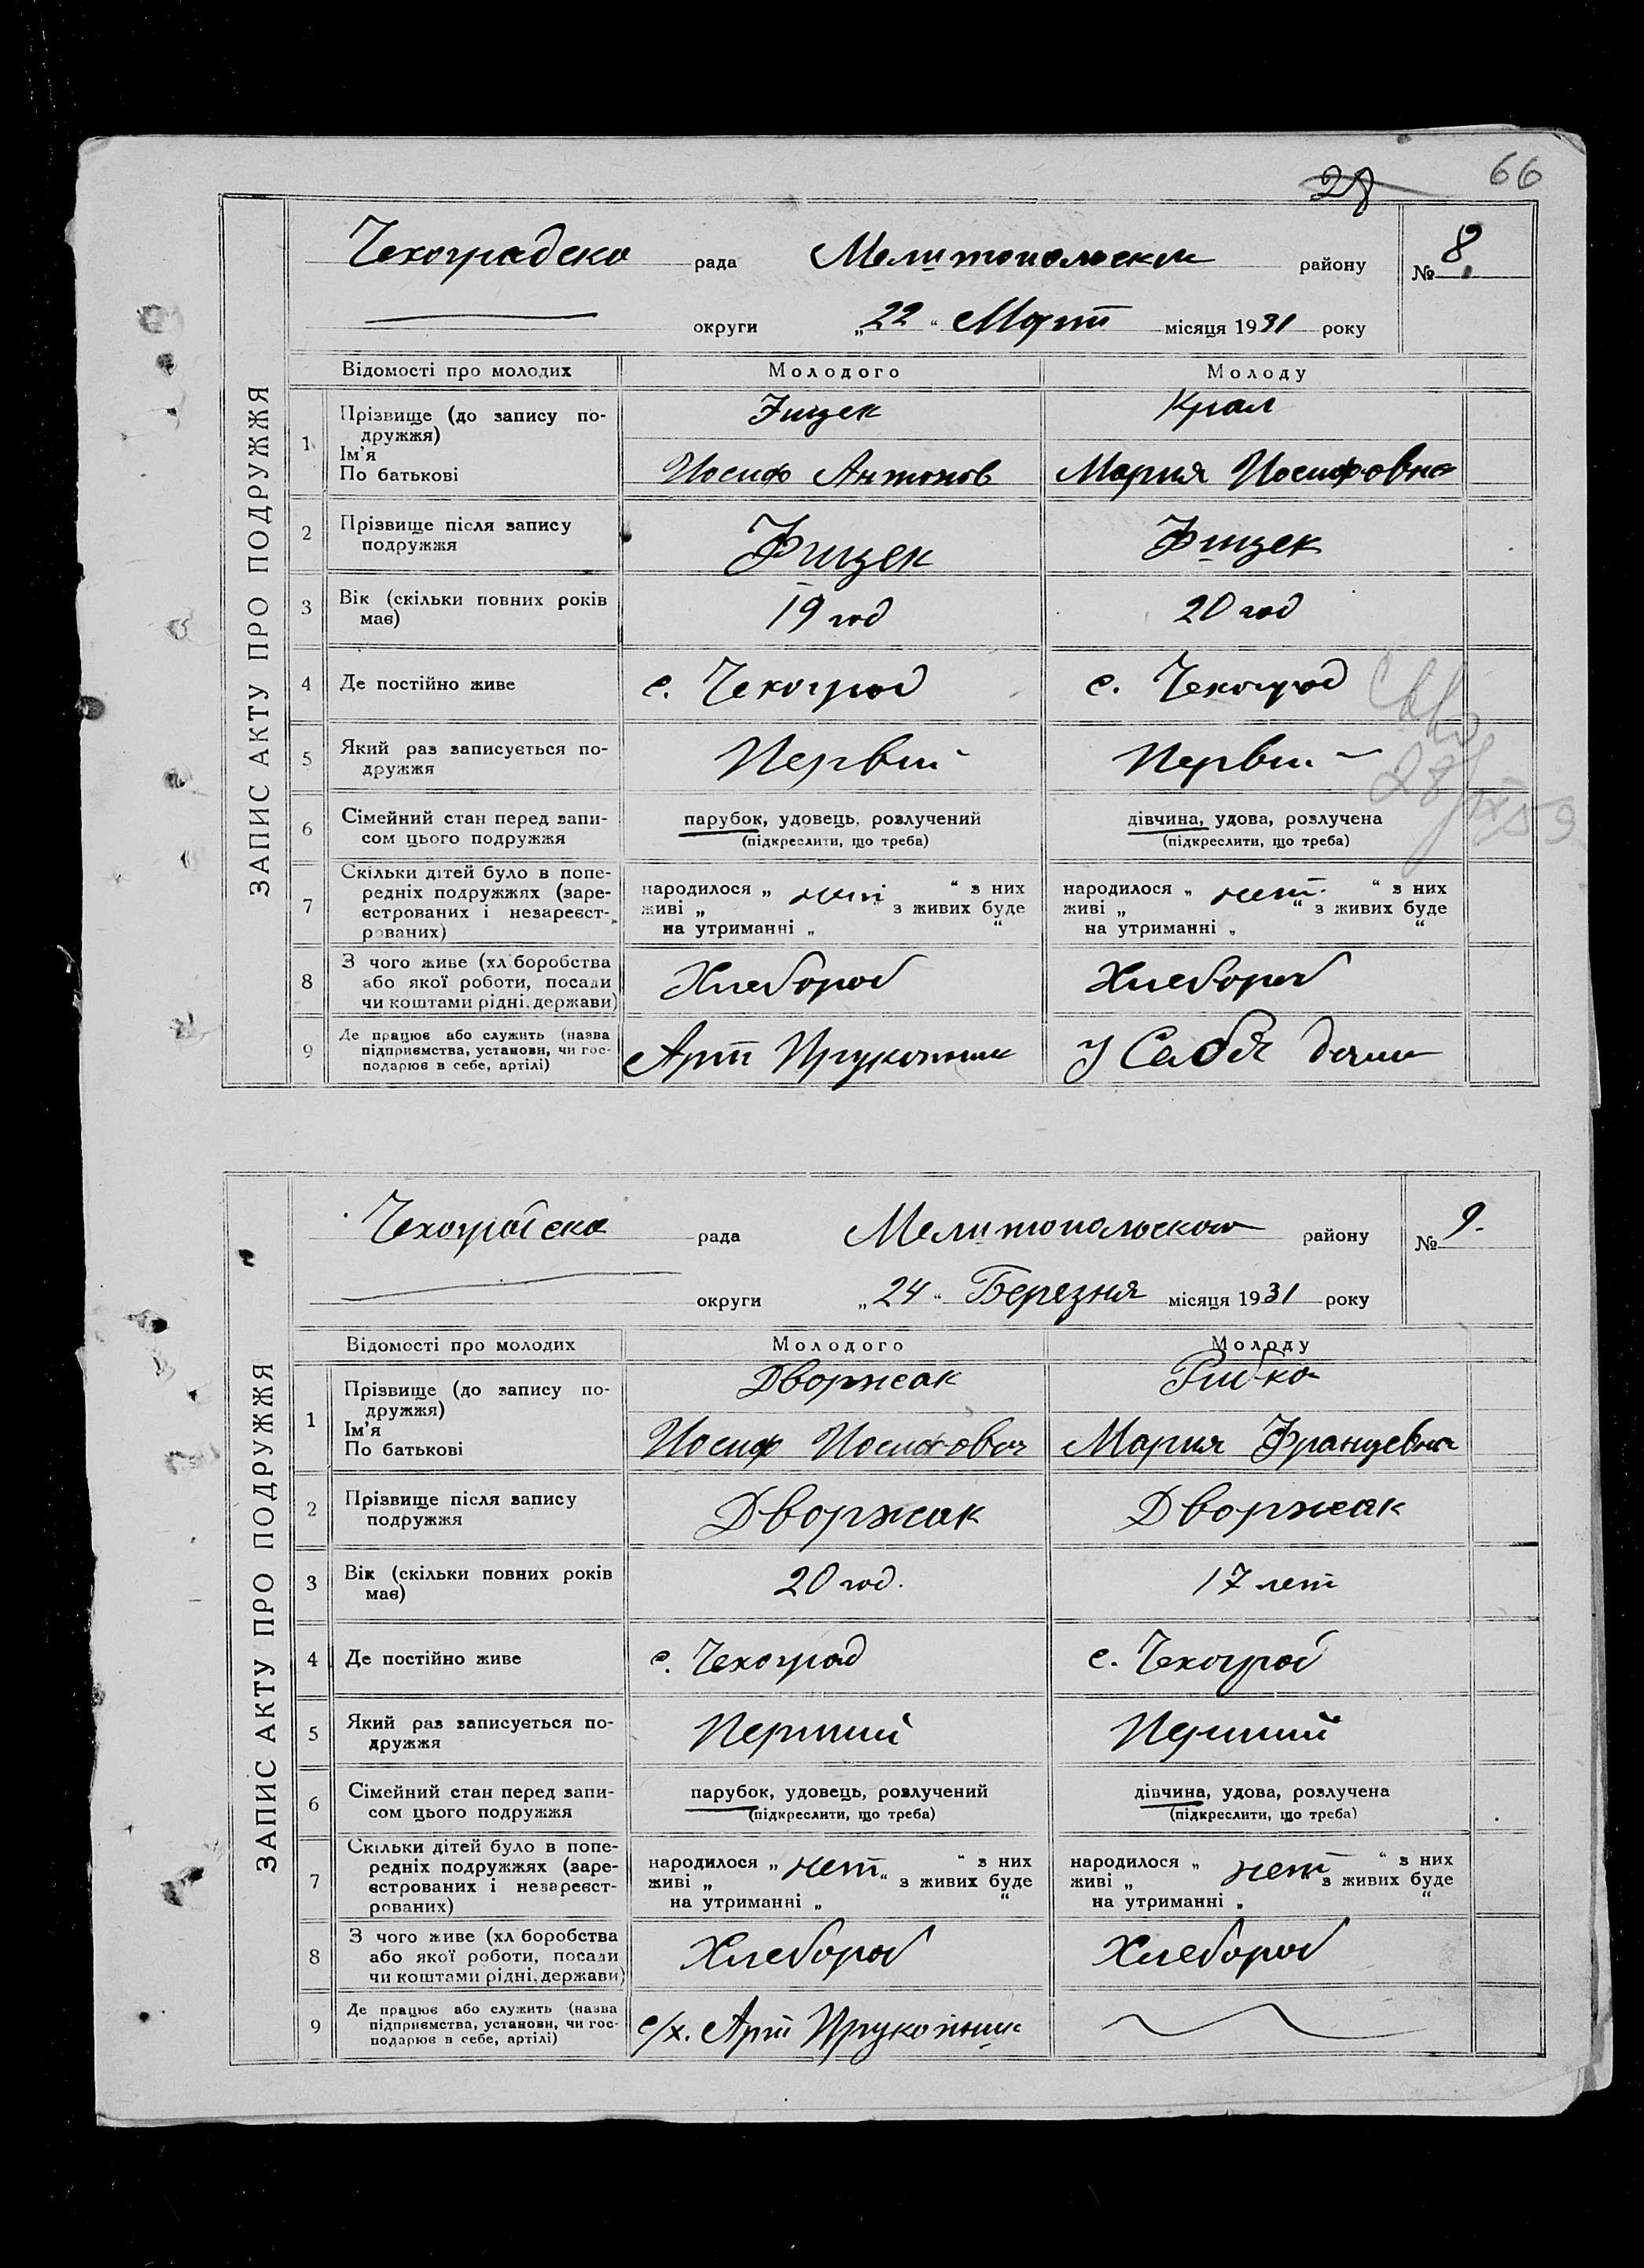 28 66
ЗАПИС АКТУ ПРО ПОДРУЖЖЯ
Чехоградска рада Мелитопольски району № 8.
округи „22“ Март місяця 1931 року
Відомості про молодих Молодого Молоду
1 Прізвище (до запису по-
дружжя)
Ім'я
По батькові
Фицек Крал
Иосиф Антонов Мария Иосифовна
2 Прізвище після запису
подружжя
Фицек Фицек
3 Вік (скільки повних років
має)
19 год 20 год
4 Де постійно живе с. Чехоград с. Чехоград
5 Який раз записується по-
дружжя
Первий Первий
6 Сімейний стан перед запи-
сом цього подружжя
парубок, удовець, розлучений дівчина, удова, розлучена
(підкреслити, що треба) (підкреслити, що треба)
7 Скільки дітей було в попе-
редніх подружжях (заре-
єстрованих і незареєст-
рованих)
народилося „ нет “ з них народилося „ нет “ з них
живі „ “ з живих буде живі „ “ з живих буде
на утриманні „ “ на утриманні „ “
8 З чого живе (хліборобства
або якої роботи, посади
чи коштами рідні, держави)
Хлебороб Хлебороб
9 Де працює або служить (назва
підприємства, установи, чи гос-
подарює в себе, артілі)
Арт У Себя дома
ЗАПИС АКТУ ПРО ПОДРУЖЖЯ
Чехоградска рада Мелитопольского району № 9.
округи „24“ Березня місяця 1931 року
Відомості про молодих Молодого Молоду
1 Прізвище (до запису по-
дружжя)
Ім'я
По батькові
Дворжак Рибка
Иосиф Иосифович Мария Францевна
2 Прізвище після запису
подружжя
Дворжак Дворжак
3 Вік (скільки повних років
має)
20 год. 17 лет
4 Де постійно живе с. Чехоград с. Чехоград
5 Який раз записується по-
дружжя
Перший Перший
6 Сімейний стан перед запи-
сом цього подружжя
парубок, удовець, розлучений дівчина, удова, розлучена
(підкреслити, що треба) (підкреслити, що треба)
7 Скільки дітей було в попе-
редніх подружжях (заре-
єстрованих і незареєст-
рованих)
народилося „ нет “ з них народилося „ нет “ з них
живі „ “ з живих буде живі „ “ з живих буде
на утриманні „ “ на утриманні „ “
8 З чого живе (хліборобства
або якої роботи, посади
чи коштами рідні, держави)
Хлебороб Хлебороб
9 Де працює або служить (назва
підприємства, установи, чи гос-
подарює в себе, артілі)
с/х. Арт